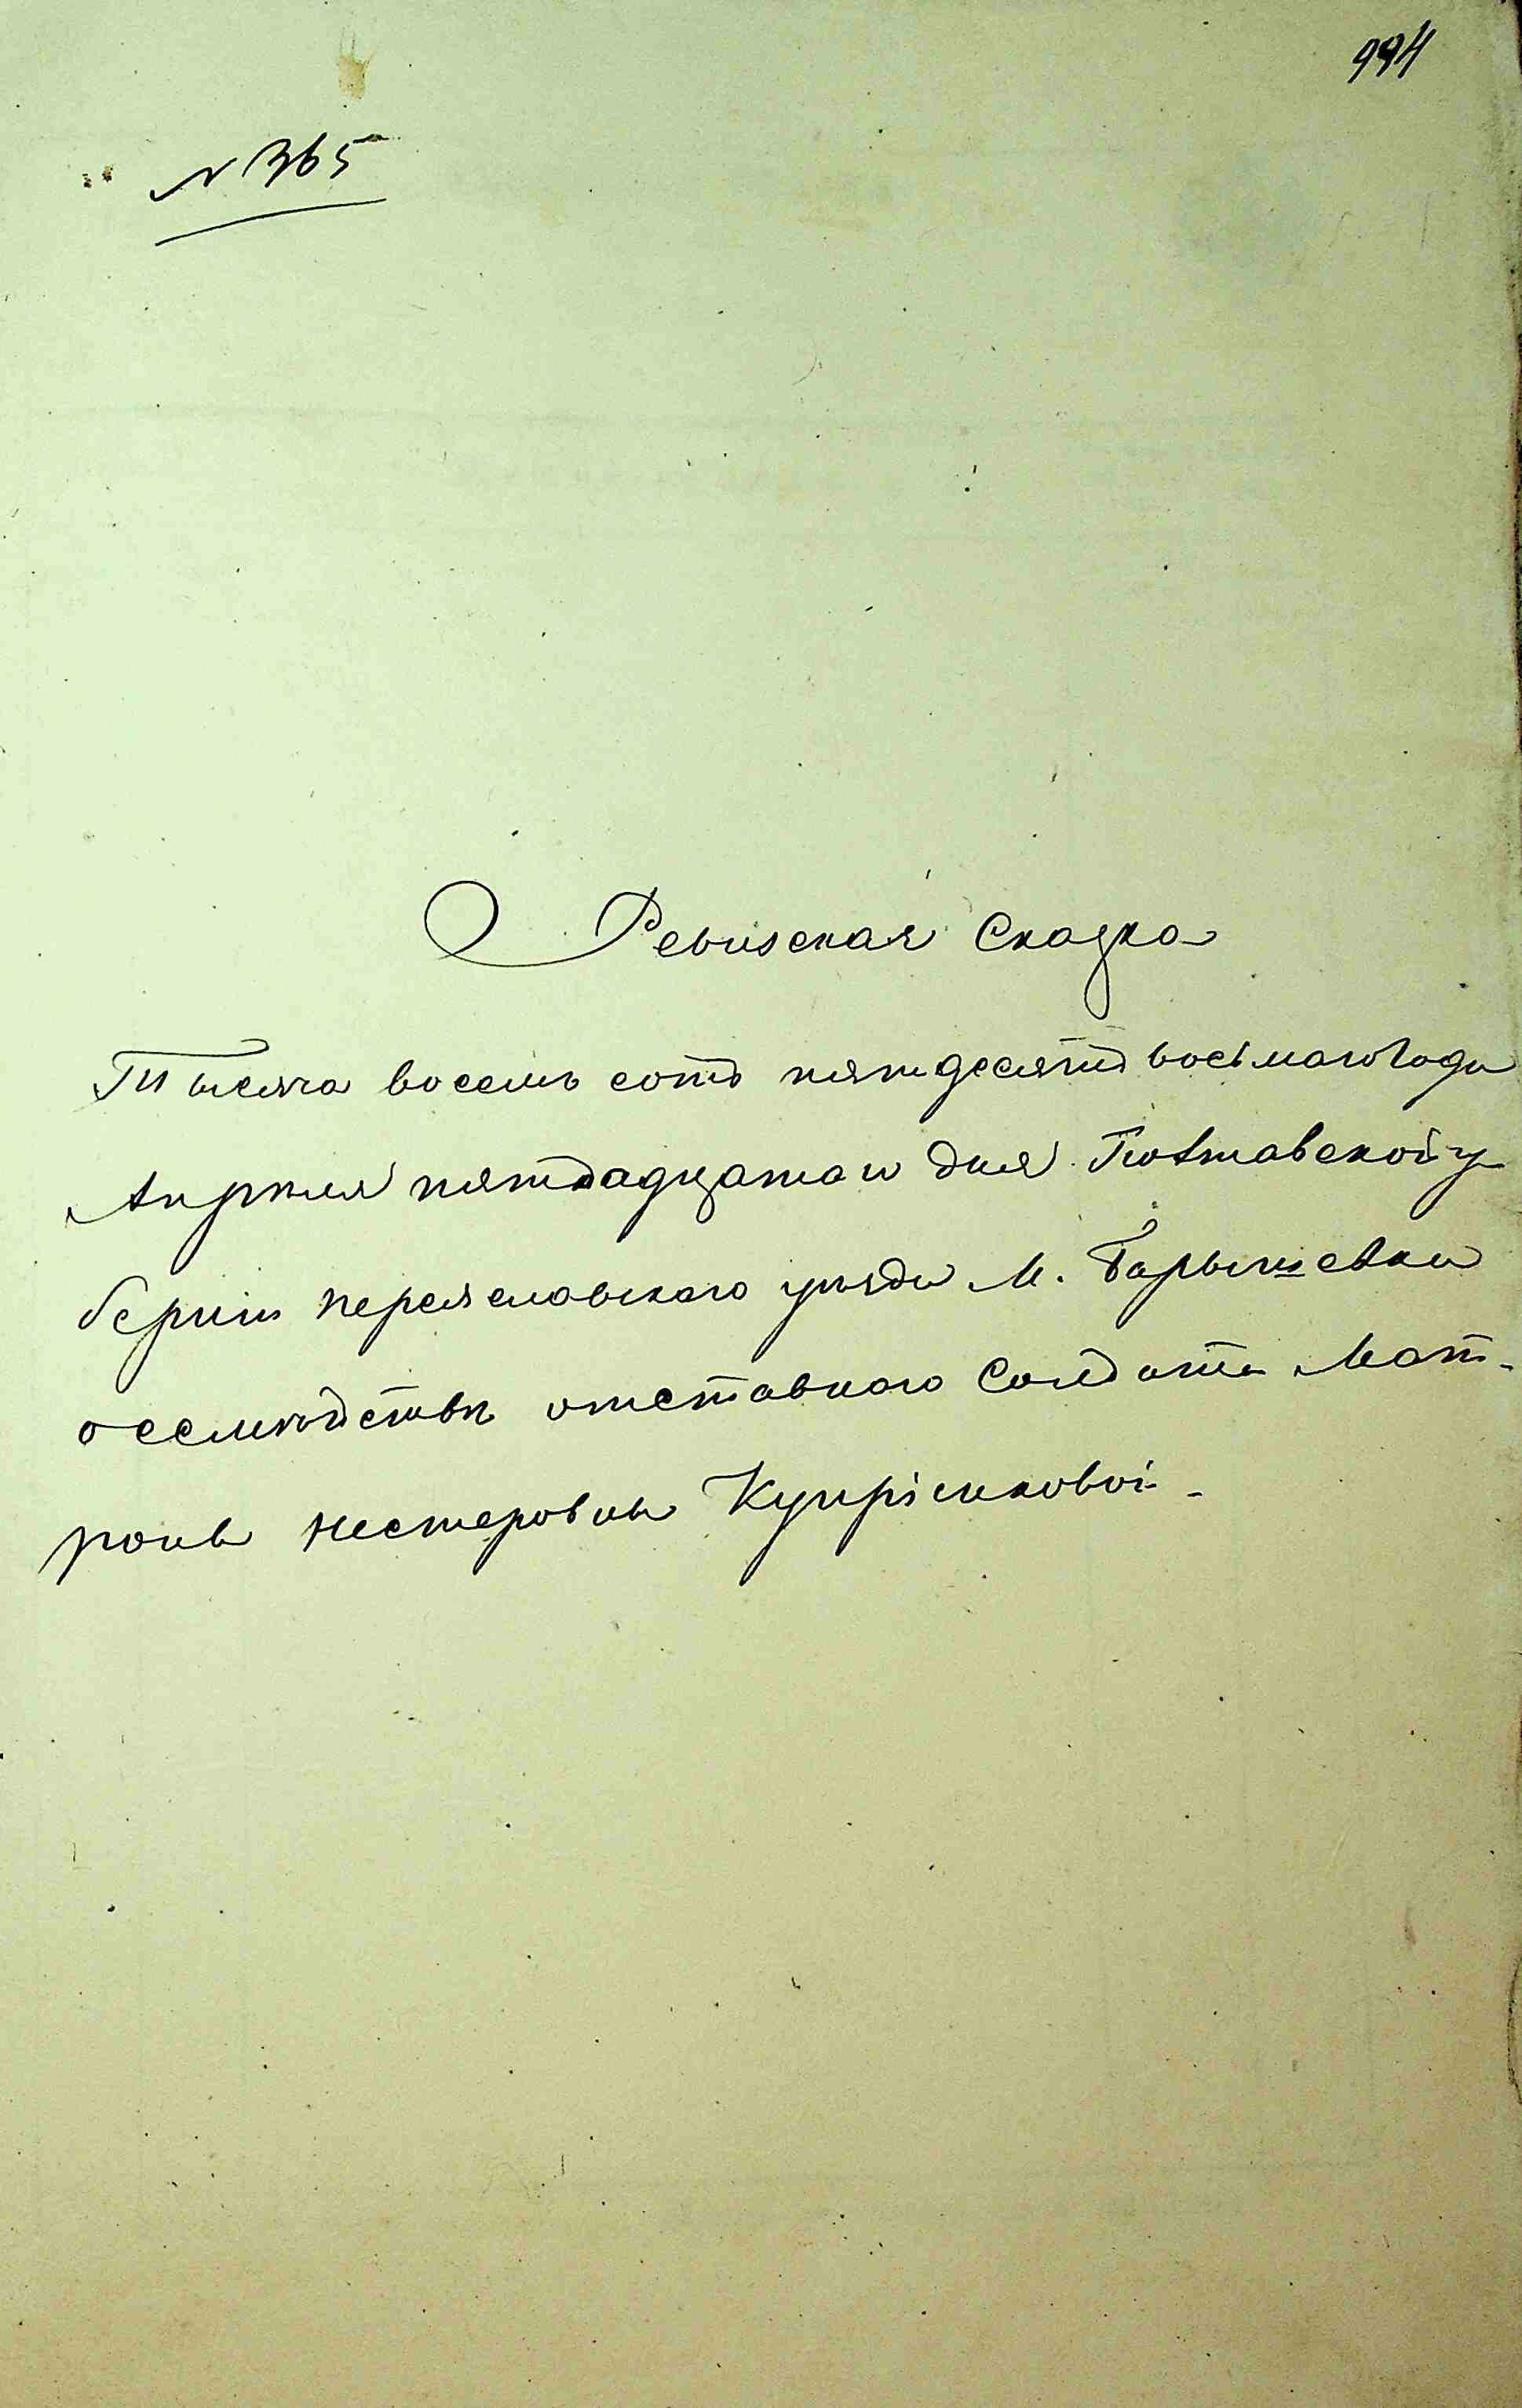 994
N 365
Ревизская Сказка
Тысяча восемь сотъ пятдесятъ восьмаго Года
Апреля пятнадцатого дня Полтавской гу
берніи Переяславского уезда М. Барышевки
о семействѣ отставного Солдата Мат-
роны Нестеровны Купріенковой -